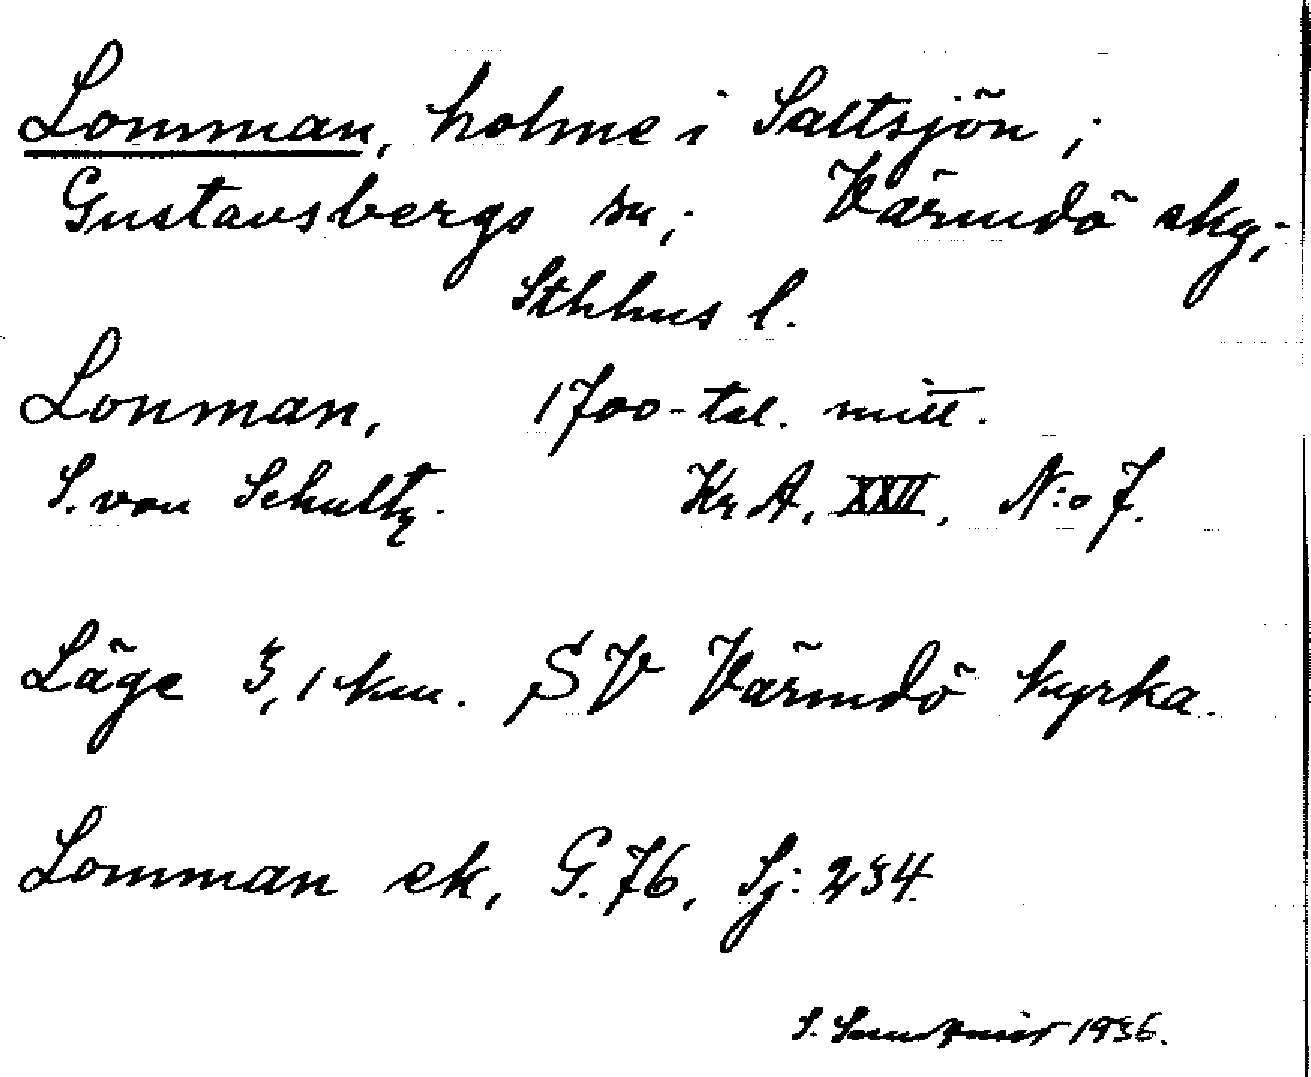 Lomman, holme i Saltsjön;
Gustavsbergs sn; Värmdö skg;
Sthlms l.
Lonman, 1700-tal. mitt.
S. von Schultz. Kr A, XXII, N:o 7.
Läge 3,1 km. SV Värmdö kyrka.
Lomman ek, G. 76, Sj: 234.
S. 1936.